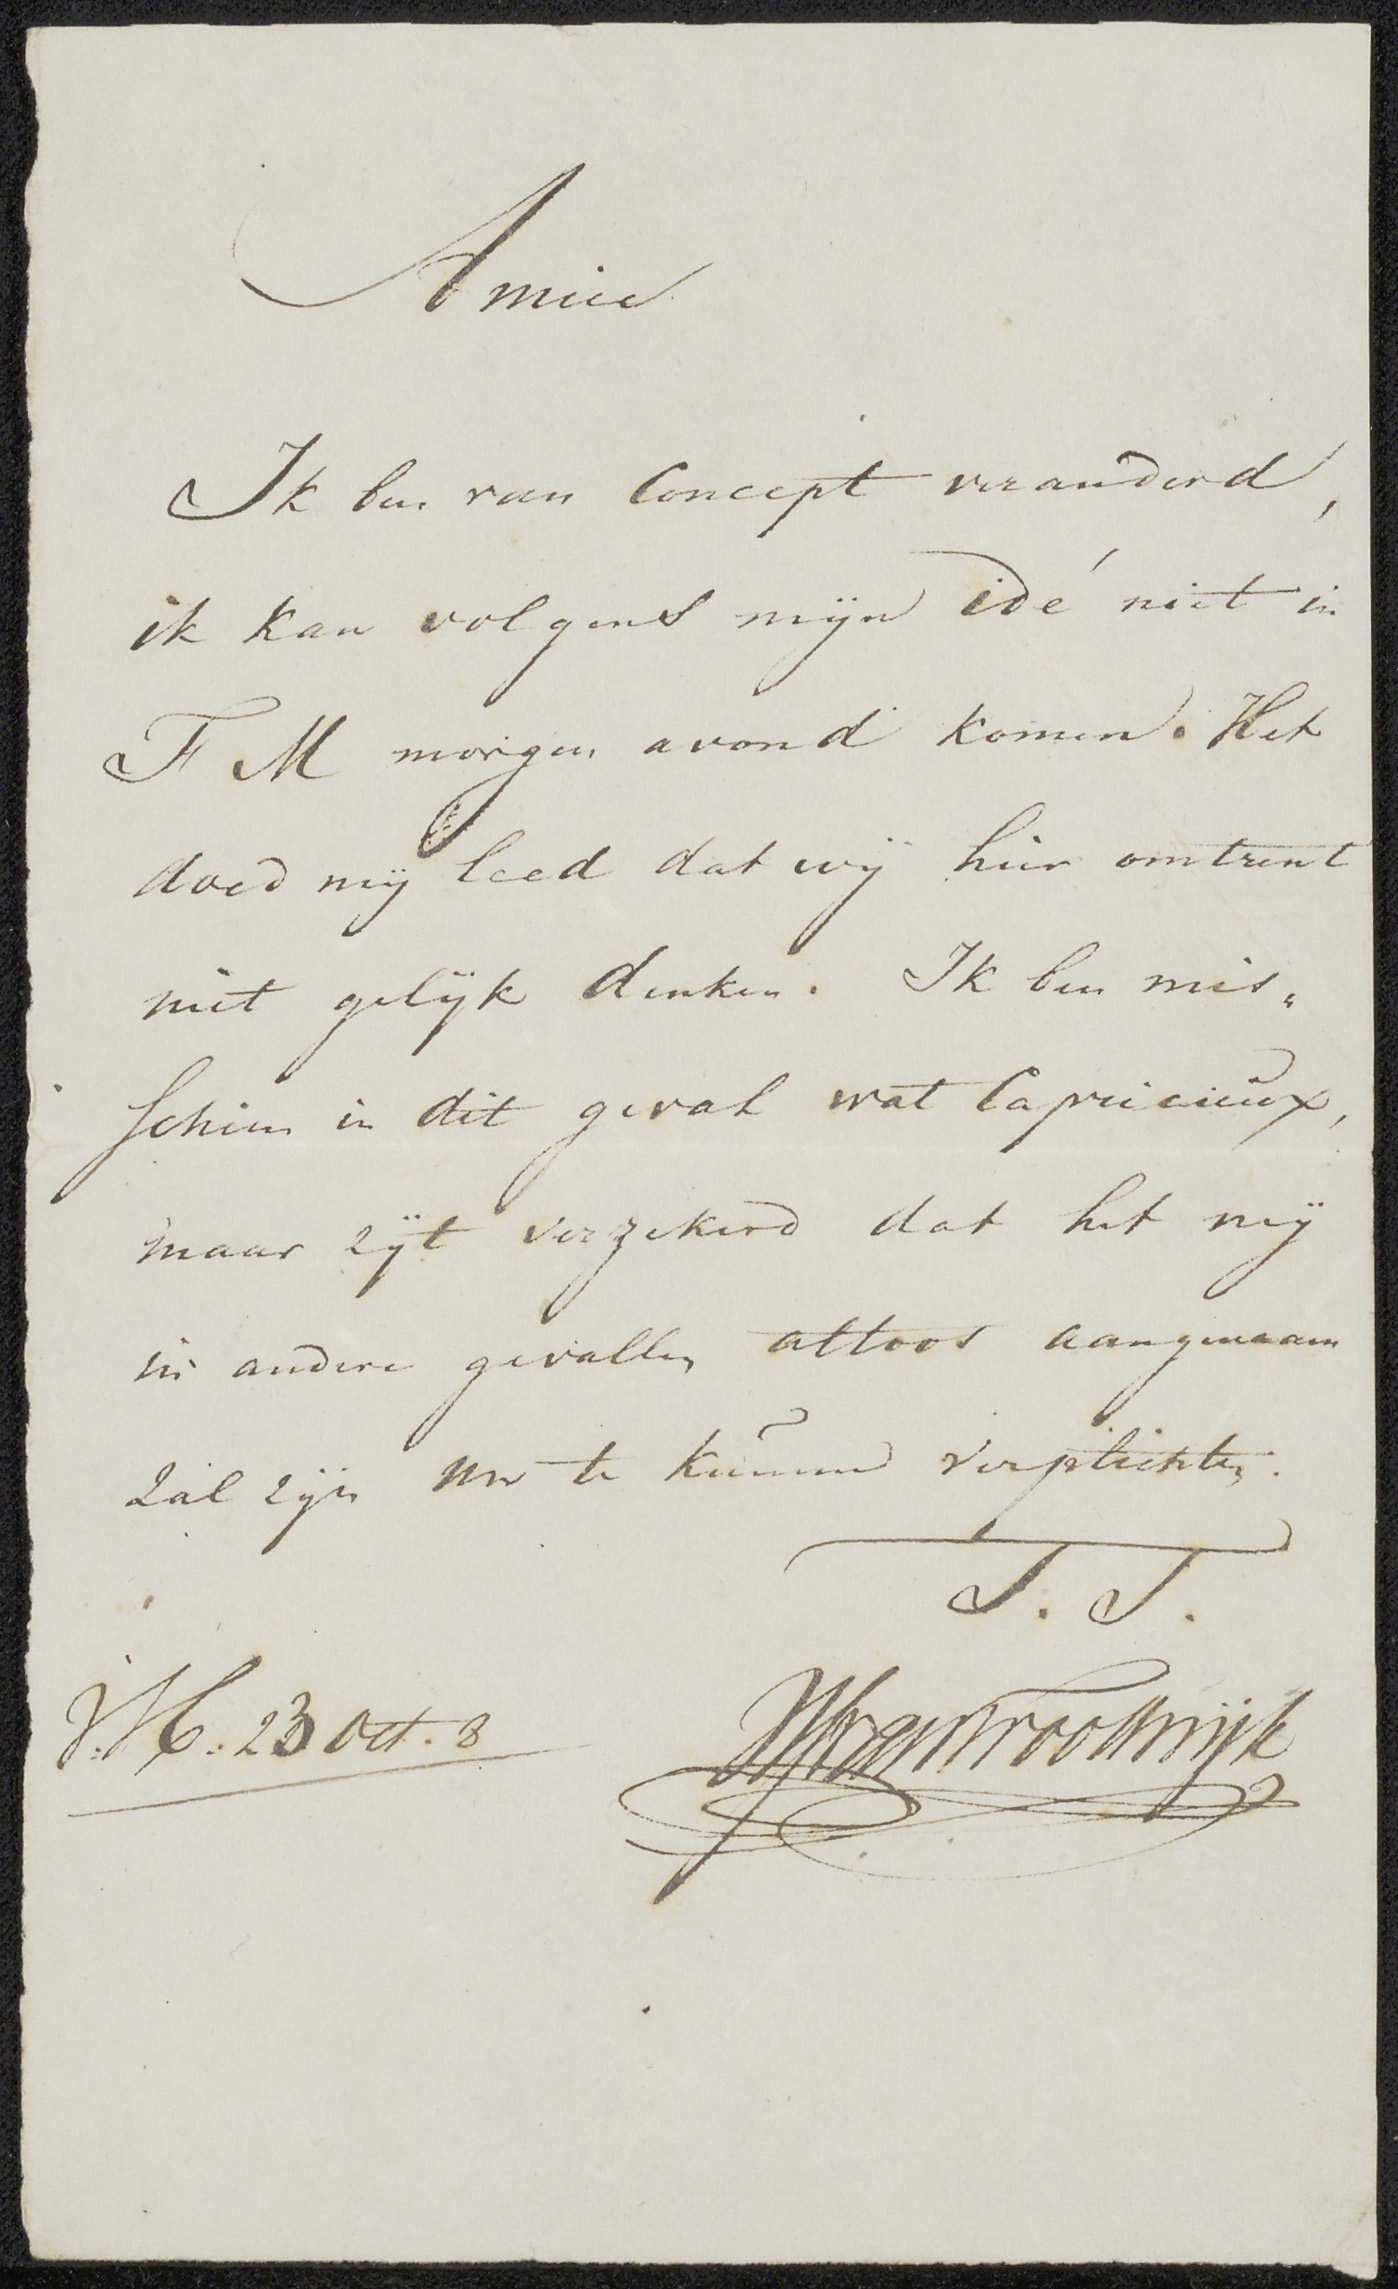 Amice
Ik ben van Concept veranderd,
ik kan volgens mijn idé niet in
F M morgen avond komen. Het
doed mij leed dat wij hier omtrent
niet gelijk denken. Ik ben mis„
schien in dit geval wat Capricieux,
maar zijt verzekerd dat het mij
in andere gevallen altoos aangenaam
zal zijn uw te kunnen verplichten.
T. T.
23 Oct. 8